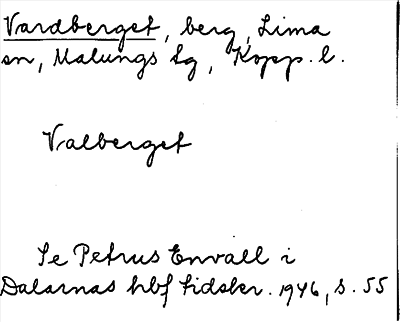 Vardberget, berg, Lima
sn, Malungs tg, Kopp. l.
Valberget
Se Petrus Envall i
Dalarnas hbf tidskr. 1946, s. 55